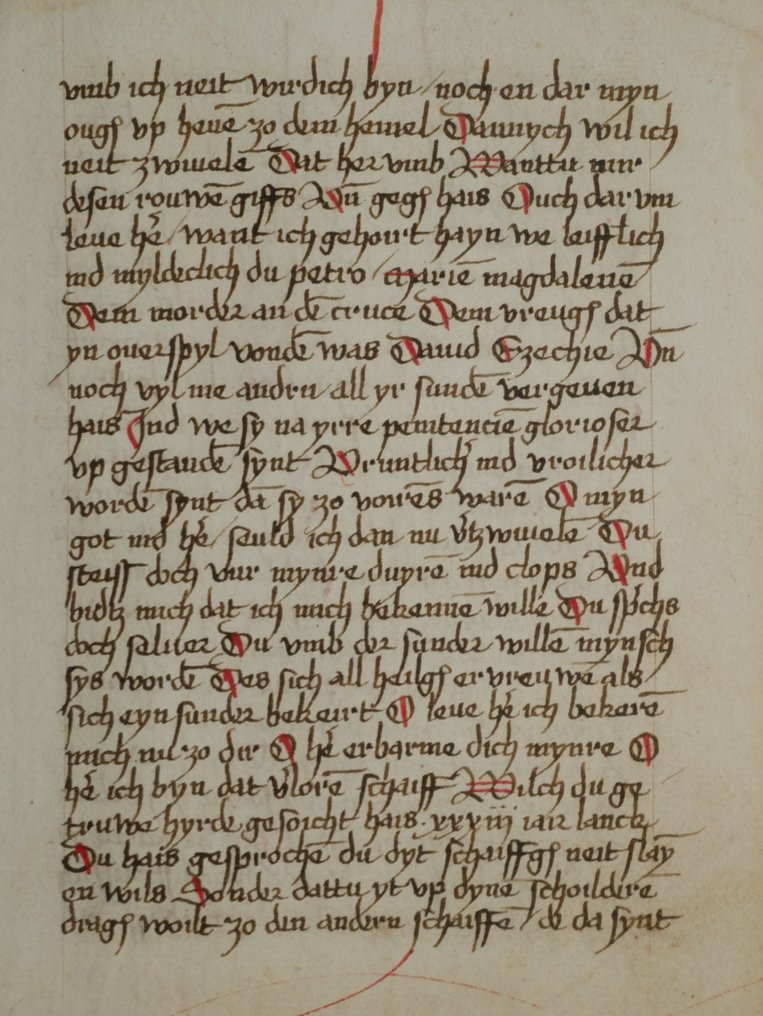 vmb ich neit wirdich byn / noch en dar myn
ougē vp heuē zo dem hemel Daūnych wil ich
neit zwiuelē Dat her vmb Wanttu mir
desen rouwē giffs Vn̄ gegē hais Ouch dar vm
leue he͛ / want ich gehoirt hayn we leifflich
ind myldeclich du petro / marie͞ magdalene͞
Dem morder an de͞ cruce Dem vreugē dat
yn ouerspyl vonde͞ was Dauid Ezechie Vn̄
noch vyl me andrn all yr sunde͞ vergeuen
hais Ind we sy na yrre penitencie͞ glorioser
vp gestande͞ synt Vruntlich͛ ind vroilicher
worde͞ synt da͞ sy zo vore͞s ware͞ O myn
got ind he͛ / seuld ich dan nu v͛tzwiuele͞ Du
steiss doch vur mynre duyre͞ ind clops Vnd
bidtz mich dat ich mich bekenne͞ wille Du sp͛chs
doch seluer Du vmb der sunder wille͞ mynsch
sys worde͞ Des sich all heilgē ervreuwe͞ als
sich eyn sunder bekeirt O leue he͛ ich bekere͞
mich nu zo dir O he͛ erbarme dich mynre O
he͛ ich byn dat v͛lore͞ schaiff Wilch du ge
truwe hyrde gesoicht hais · xxxiii iair lanck
Du hais gesproche͞ du dyt schaiffgē neit slay͞
en wils Sonder dattu yt vp dyne schoildere͞
dragē woilt zo den andern schaiffe͞ / de da synt